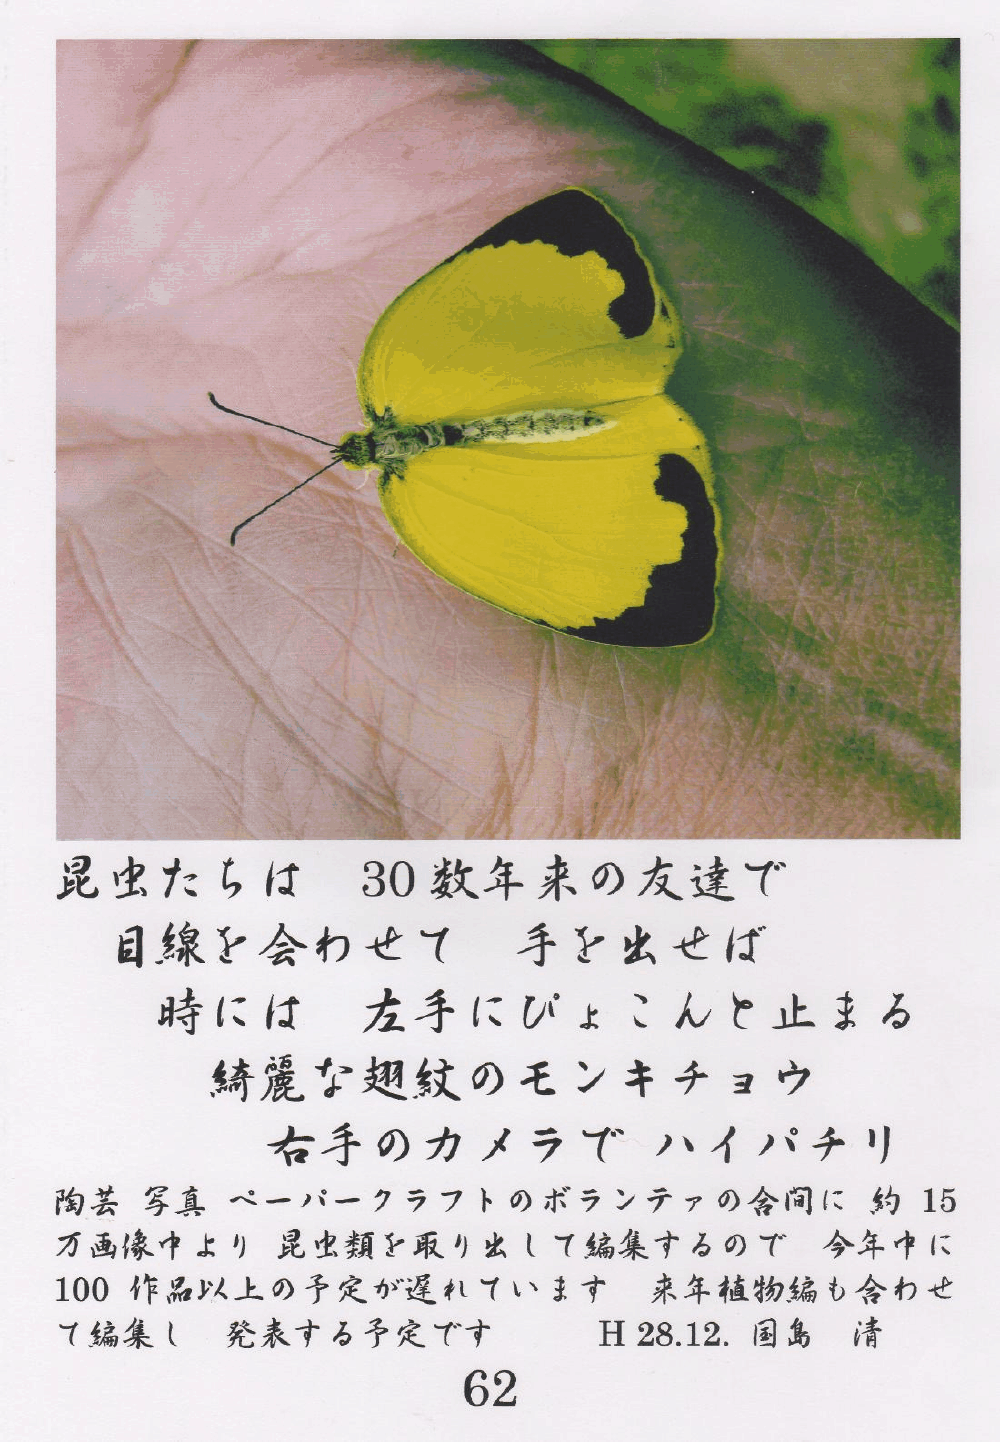 昆虫たちは 30数年来の友達で
目線を会わせて 手を出せば
時には 左手にぴょこんと止まる
綺麗な翅紋のモンキチョウ
右手のカメラで ハイパチリ
陶芸 写真 ペーパークラフトのボランテァの合間に 約 15
万画像中より 昆虫類を取り出して編集するので 今年中に
100 作品以上の予定が遅れています 来年植物編も合わせ
て編集し 発表する予定です H 28.12. 国島 清
62